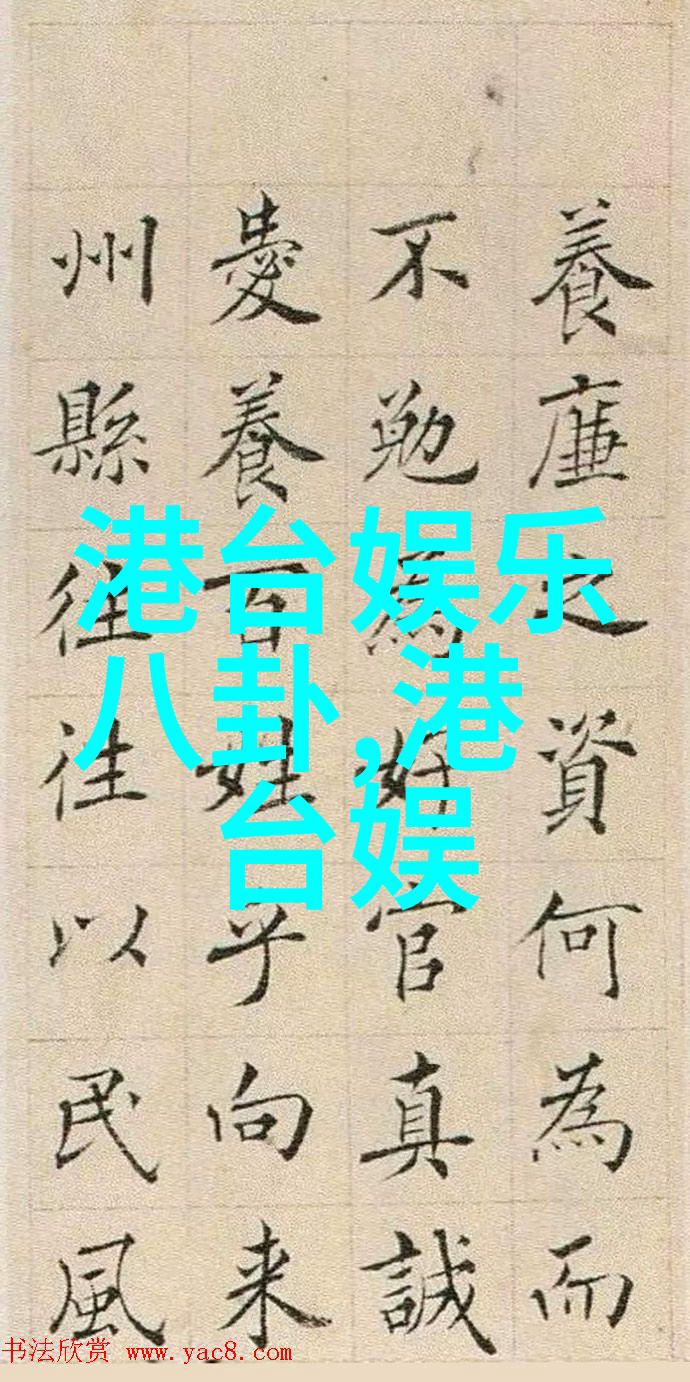 養廉之資何為而
不勉為好官真誠
愛養百姓乎向来
州縣往往以民風
港台娱乐
八卦,港
台娱
书法欣赏 www.yac8.com